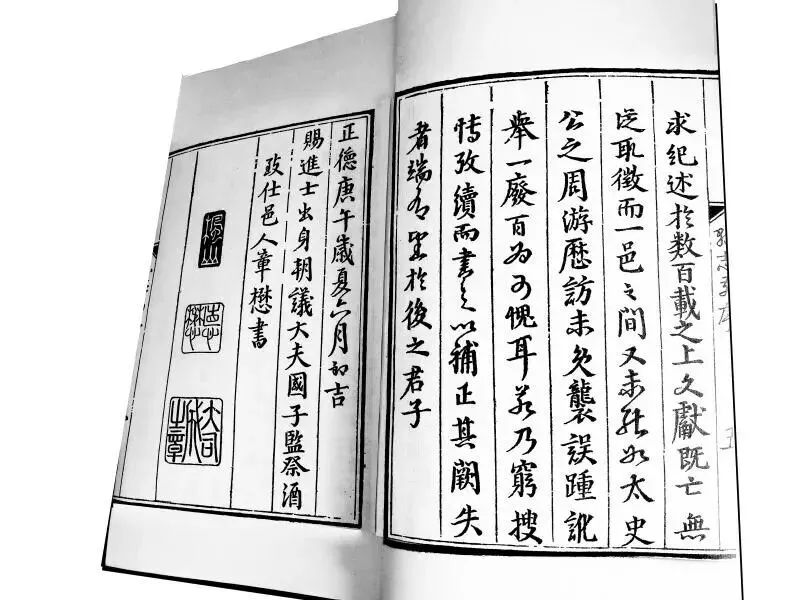 求紀述於数百載之上文獻既亡無
従取徵而一邑之間又未能如太史
公之周游歷訪未免襲誤踵訛
舉一廢百為可愧耳若乃窮搜
博攷續而書之以補正其闕失
者端有望於後之君子
正德庚午歲夏六月初吉
賜進士出身朝議大夫國子監祭酒
致仕邑人章懋書